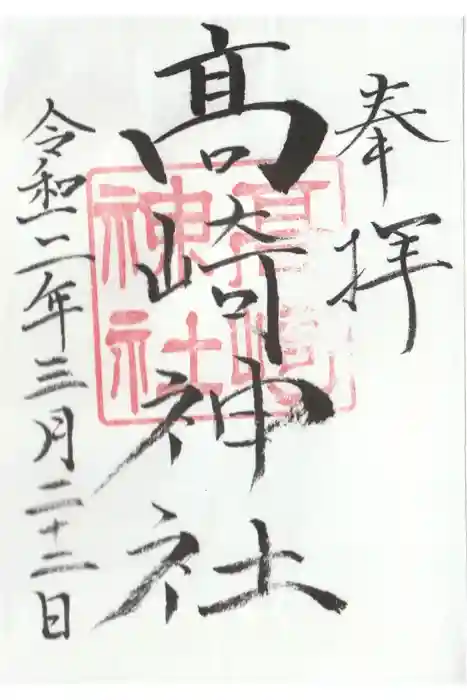 奉拝
高崎神社
令和二年三月二十二日
高崎
神社